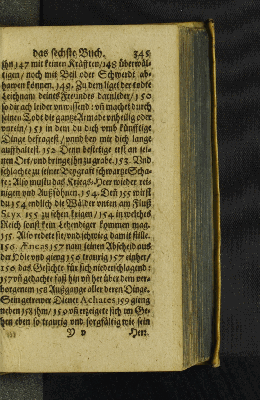 das sechste Buch. 345
ihn 147 mit keinen Kräfften/ 148 überwäl-
tigen/ noch mit Beil oder Schwerdt ab-
hawen können. 149. Zu dem liget der todte
Leichnam deines Freundes darnider/ 150
so dir ach leider unwissend: vñ machet durch
seinen Todt die gantze Armade unheilig oder
unrein/ 151 in dem du dich umb künfftige
Dinge befragest/ unnd bey mir dich lange
auffhaltest. 152. Denn bestetige erst an sei-
nen Ort/ und bringe ihn zu grabe. 153. Und
schlachte zu seiner Begräft schwartze Scha-
fe: Also mustu das Kriegs-Heer wieder rei-
nigen und Außsöhnen. 154. Deß 155 wirst
du 154 endlich die Wälder unten am Fluß
Styx 155 zu sehen kriegen/ 154 in welches
Reich sonst kein Lebendiger kommen mag.
155. Also redete sie/ und schwieg damit stille.
156. Æneas 157 nam seinen Abscheid aus
der Hôle und gieng 156 traurig 157 einher/
156 das Gesichte für sich niederschlagend:
157 vñ gedachte fast hin vñ her über dem ver-
borgenem 158 Außgange aller deren Dinge.
Sein getrewer Diener Achates 159 gieng
neben 158 ihm/ 159 vñ erzeigete sich im Ge-
hen eben so traurig und sorgfältig wie sein
Y v Herr.